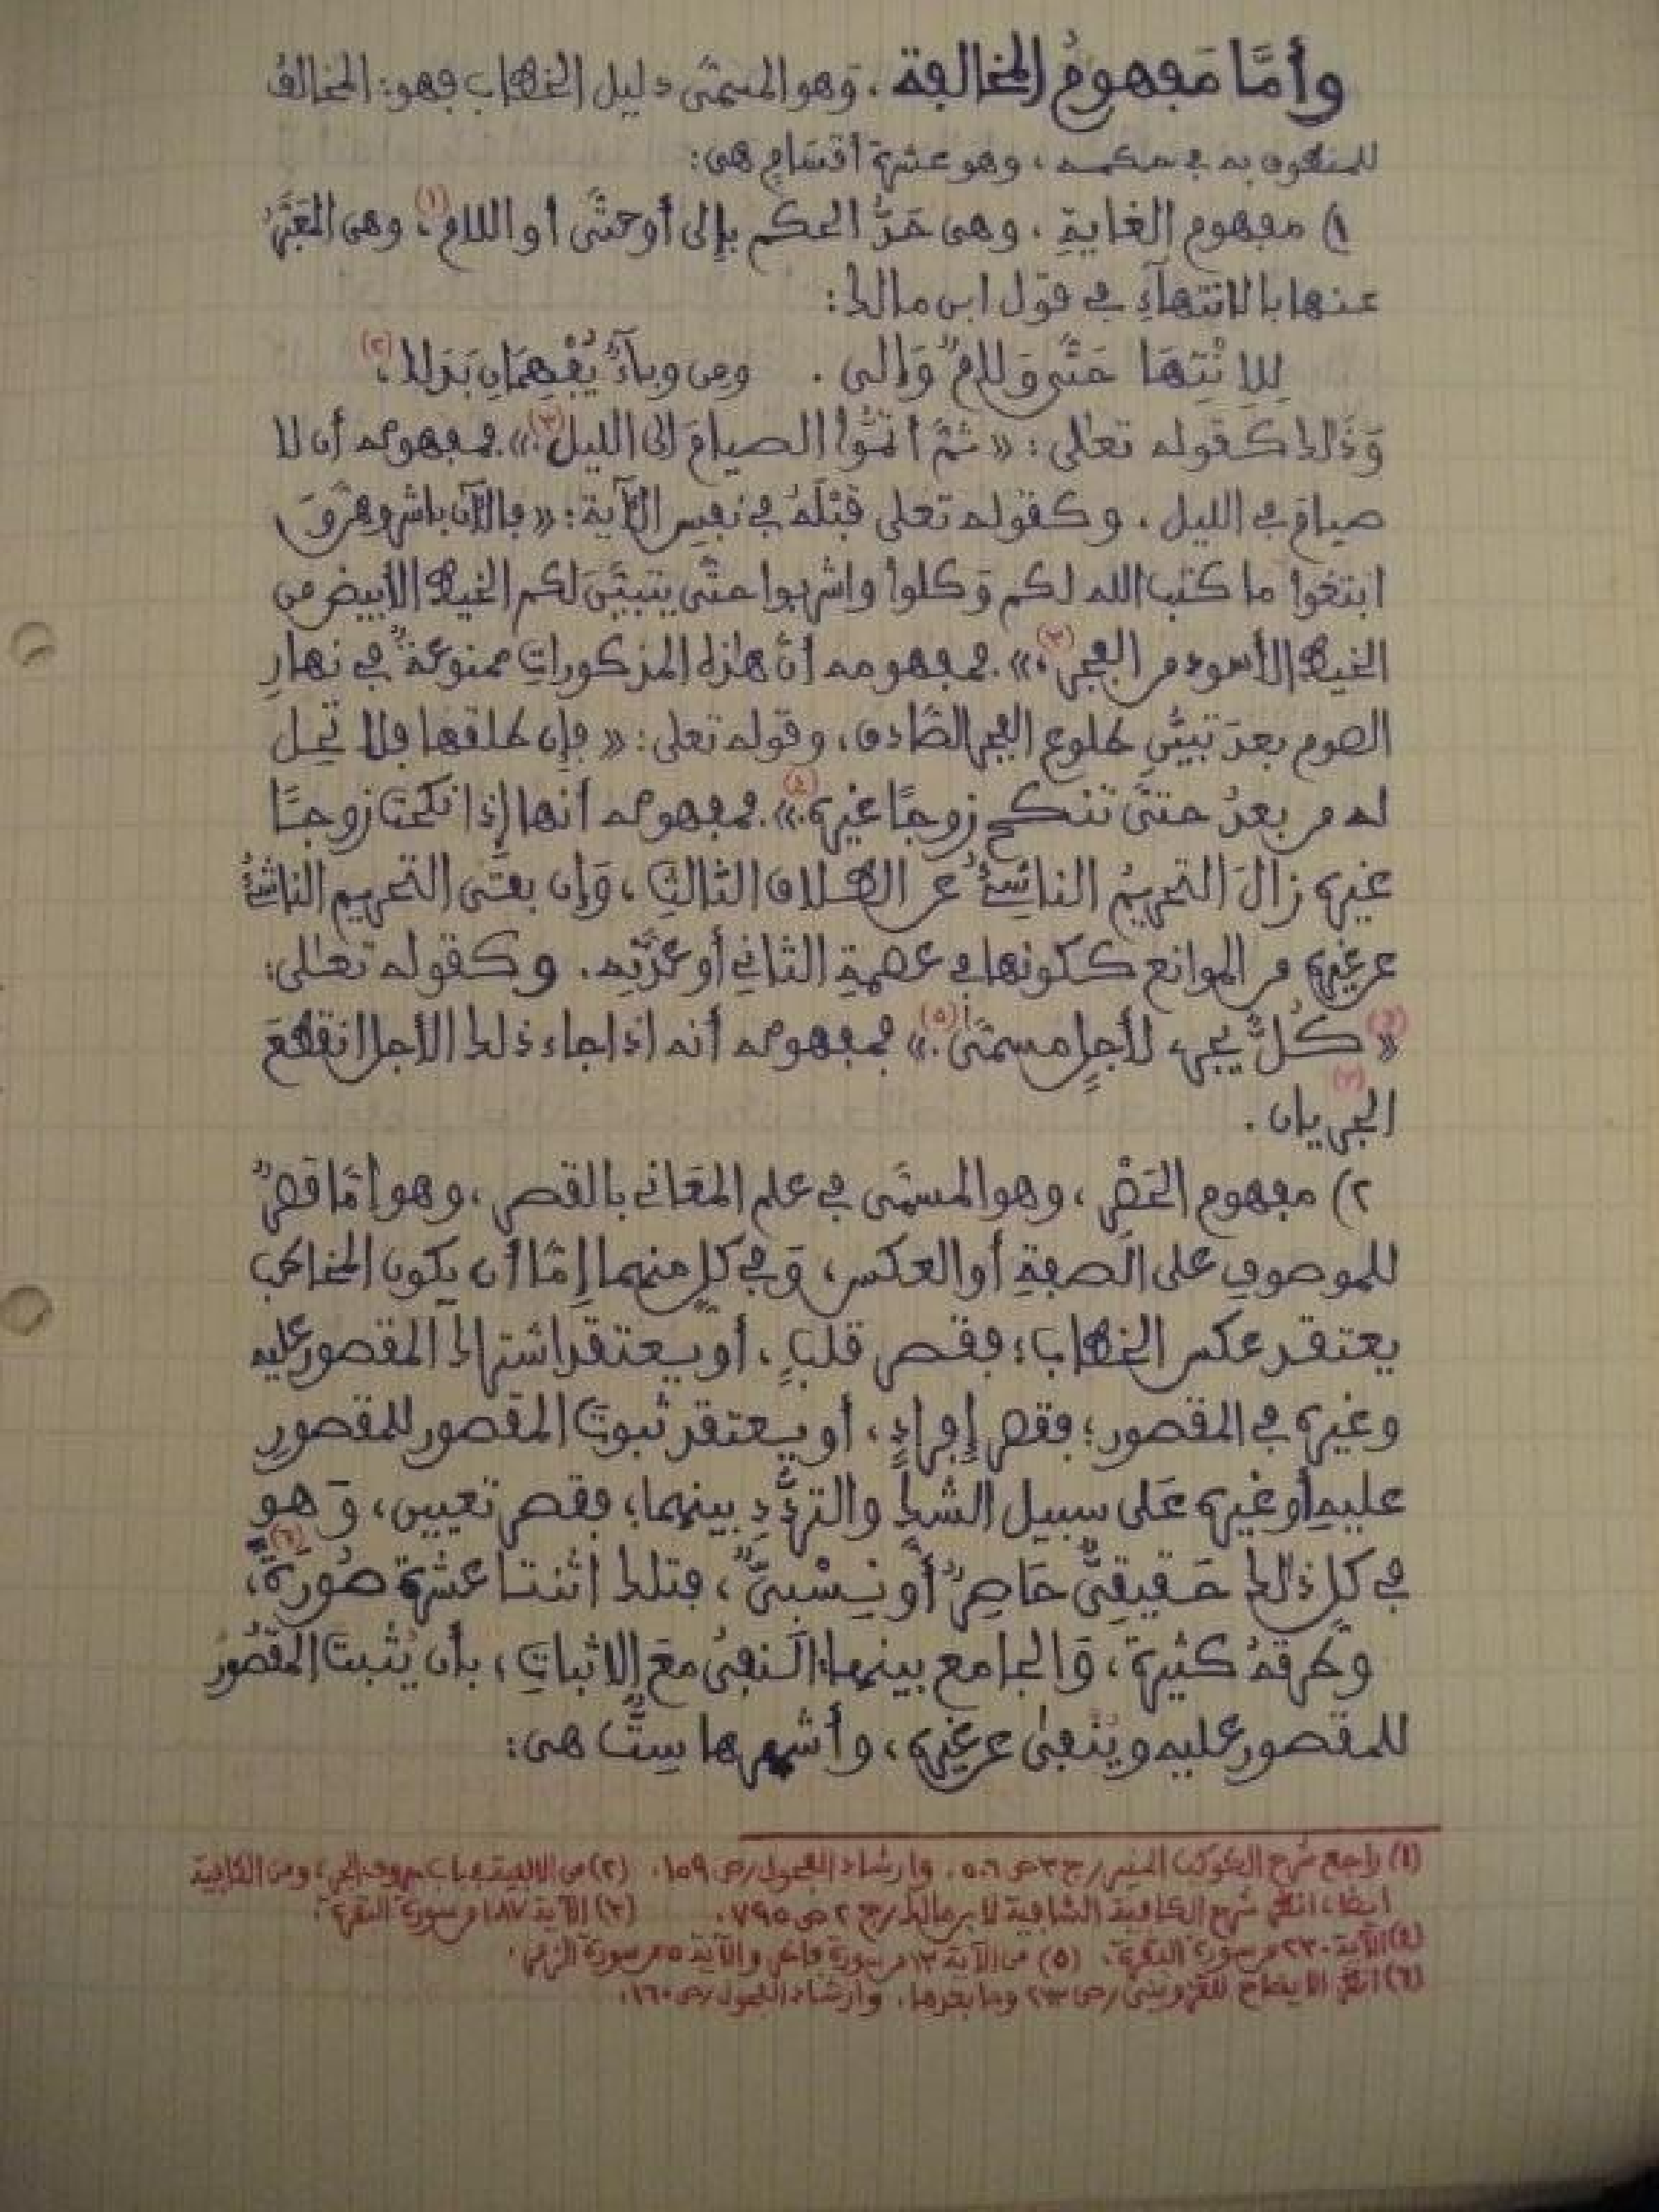 وأمَّا مَفهومُ المخالفة ، وَهو المسمَّى دليل الخطاب فهو: المخالف
للمنطوق به في حكمه ، وهو عشرة أقسَام هى:
١) مفهوم الغايةِ ، وهى مَدُّ الحكم بإلى أو حتَّى أو اللام (١)، وهى المعَبَّرُ
عنها بالانتهآءِ في قول ابن مالك:
لِلاِنْتِهَا حَتَّى وَلاَمٌ وَإلى . ومن وبآءٌ يُفْهِمَانِ بَدَلا (٢).
وَذَلك كقوله تعالى : «ثمَّ أتمُّوا الصيامَ إلى الليل (٣).» فمفهومه أن لا
صيامَ في الليل ، وكقوله تعلى قبْلَهُ في نفسِ الآية: «فالآن باشروهنَّ وَ
ابتغوا ما كتب الله لكم وَكلوا واشربوا حتَّى يتبيَّنَ لكم الخيط الأبيض من
الخيط الأسود من الفجر (٣).». فمفهومه أنَّ هاذه المذكوراتِ ممنوعةٌ في نهارِ
الصوم بعدَ تبيُّنِ طلوع الفجر الصَّادق، وقوله تعلى: «فإن طلقها فلا تحِل
له من بعدُ حتىَّ تنكح زوجًا غيره (٤).». فمفهومه أنها إذا نكحت زوجـًا
غيره زالَ التحريمُ الناشِئُ عن الطـلاق الثالثِ ، وَإن بقىَ التحريم الناشئُ
عن غيره من الموانع ككونها في عصمةِ الثاني أو عدَّتِه. وكقوله تعـلى:
«كُلٌّ يجرى لأجلٍ مسمَّى (٥).» فمفهومه أنه إذا جاء ذلك الأجل انقطعَ
الجريان .
٢) مفهوم الحَصْرِ ، وهو المسمَّى في علم المعَاني بالقصر ، وهو إمَّا قصْرٌ
للموصوفِ على الصفةِ أو العكس، وَفي كلٍ منهما إمَّا أن يكون المخاطب
يعتقد عكس الخطاب؛ فقصر قلبٍ ، أو يـعتقد اشتراك المقصور عليه
وغيره في المقصور؛ فقصر إفرادٍ ، أو يـعتقد ثبوت المقصور للمقصورِ
عليهِ أو غيره عَلى سبيل الشكِّ والتردُّدِ بينهما؛ فقصر تعيين، وَهو
في كل ذلك حَقيقِىٌّ خاصٌّ أو نِسْبىٌّ ، فتلك اثنتـا عشرة صُورَةً (٦)،
وطرقهُ كثيرة ، وَالجامع بينها: النفىُ معَ الإثباتِ ، بأن يُثبتَ المقصُورُ
للمقصور عليه ويُنفىَ عن غيره ، وأشهرها سِتٌّ هى:
(١) راجع شرح الكوكب المنير/ ج ٣ ص ٥٠٦. وإرشاد الفحول/ ص ١٥٩. (٢) من الالفية باب حروف الجر، ومن الكافية
أيضا، انظر شرح الكافية الشافية لابن مالك/ ج ٢ ص ٧٩٥. (٣) الآية ١٨٧ من سورة البقرة.
(٤) الآية ٢٣٠ من سورة البقرة. (٥) من الآية ١٣ من سورة فاطر والآية ٥ من سورة الزمر.
(٦) انظر الايضاح للقزوينى/ ص وما بعدها. وإرشاد الفحول/ ص ١٦٠.